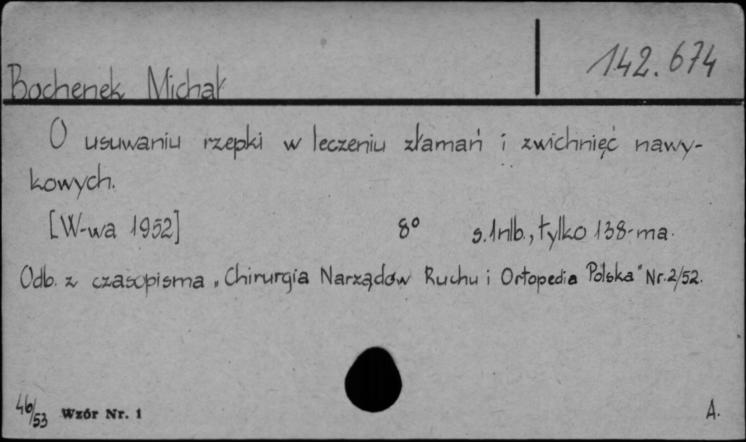 142.674
Bochenek Michał
O usuwaniu rzepki w leczeniu złamań i zwichnięć nawy-
kowych.
[W-wa 1952] 8° s. 1nlb., tylko 138-ma.
Odb. z czasopisma „Chirurgia Narządów Ruchu i Ortopedia Polska" Nr. 2/52.
46/53 Wzór Nr. 1 A.